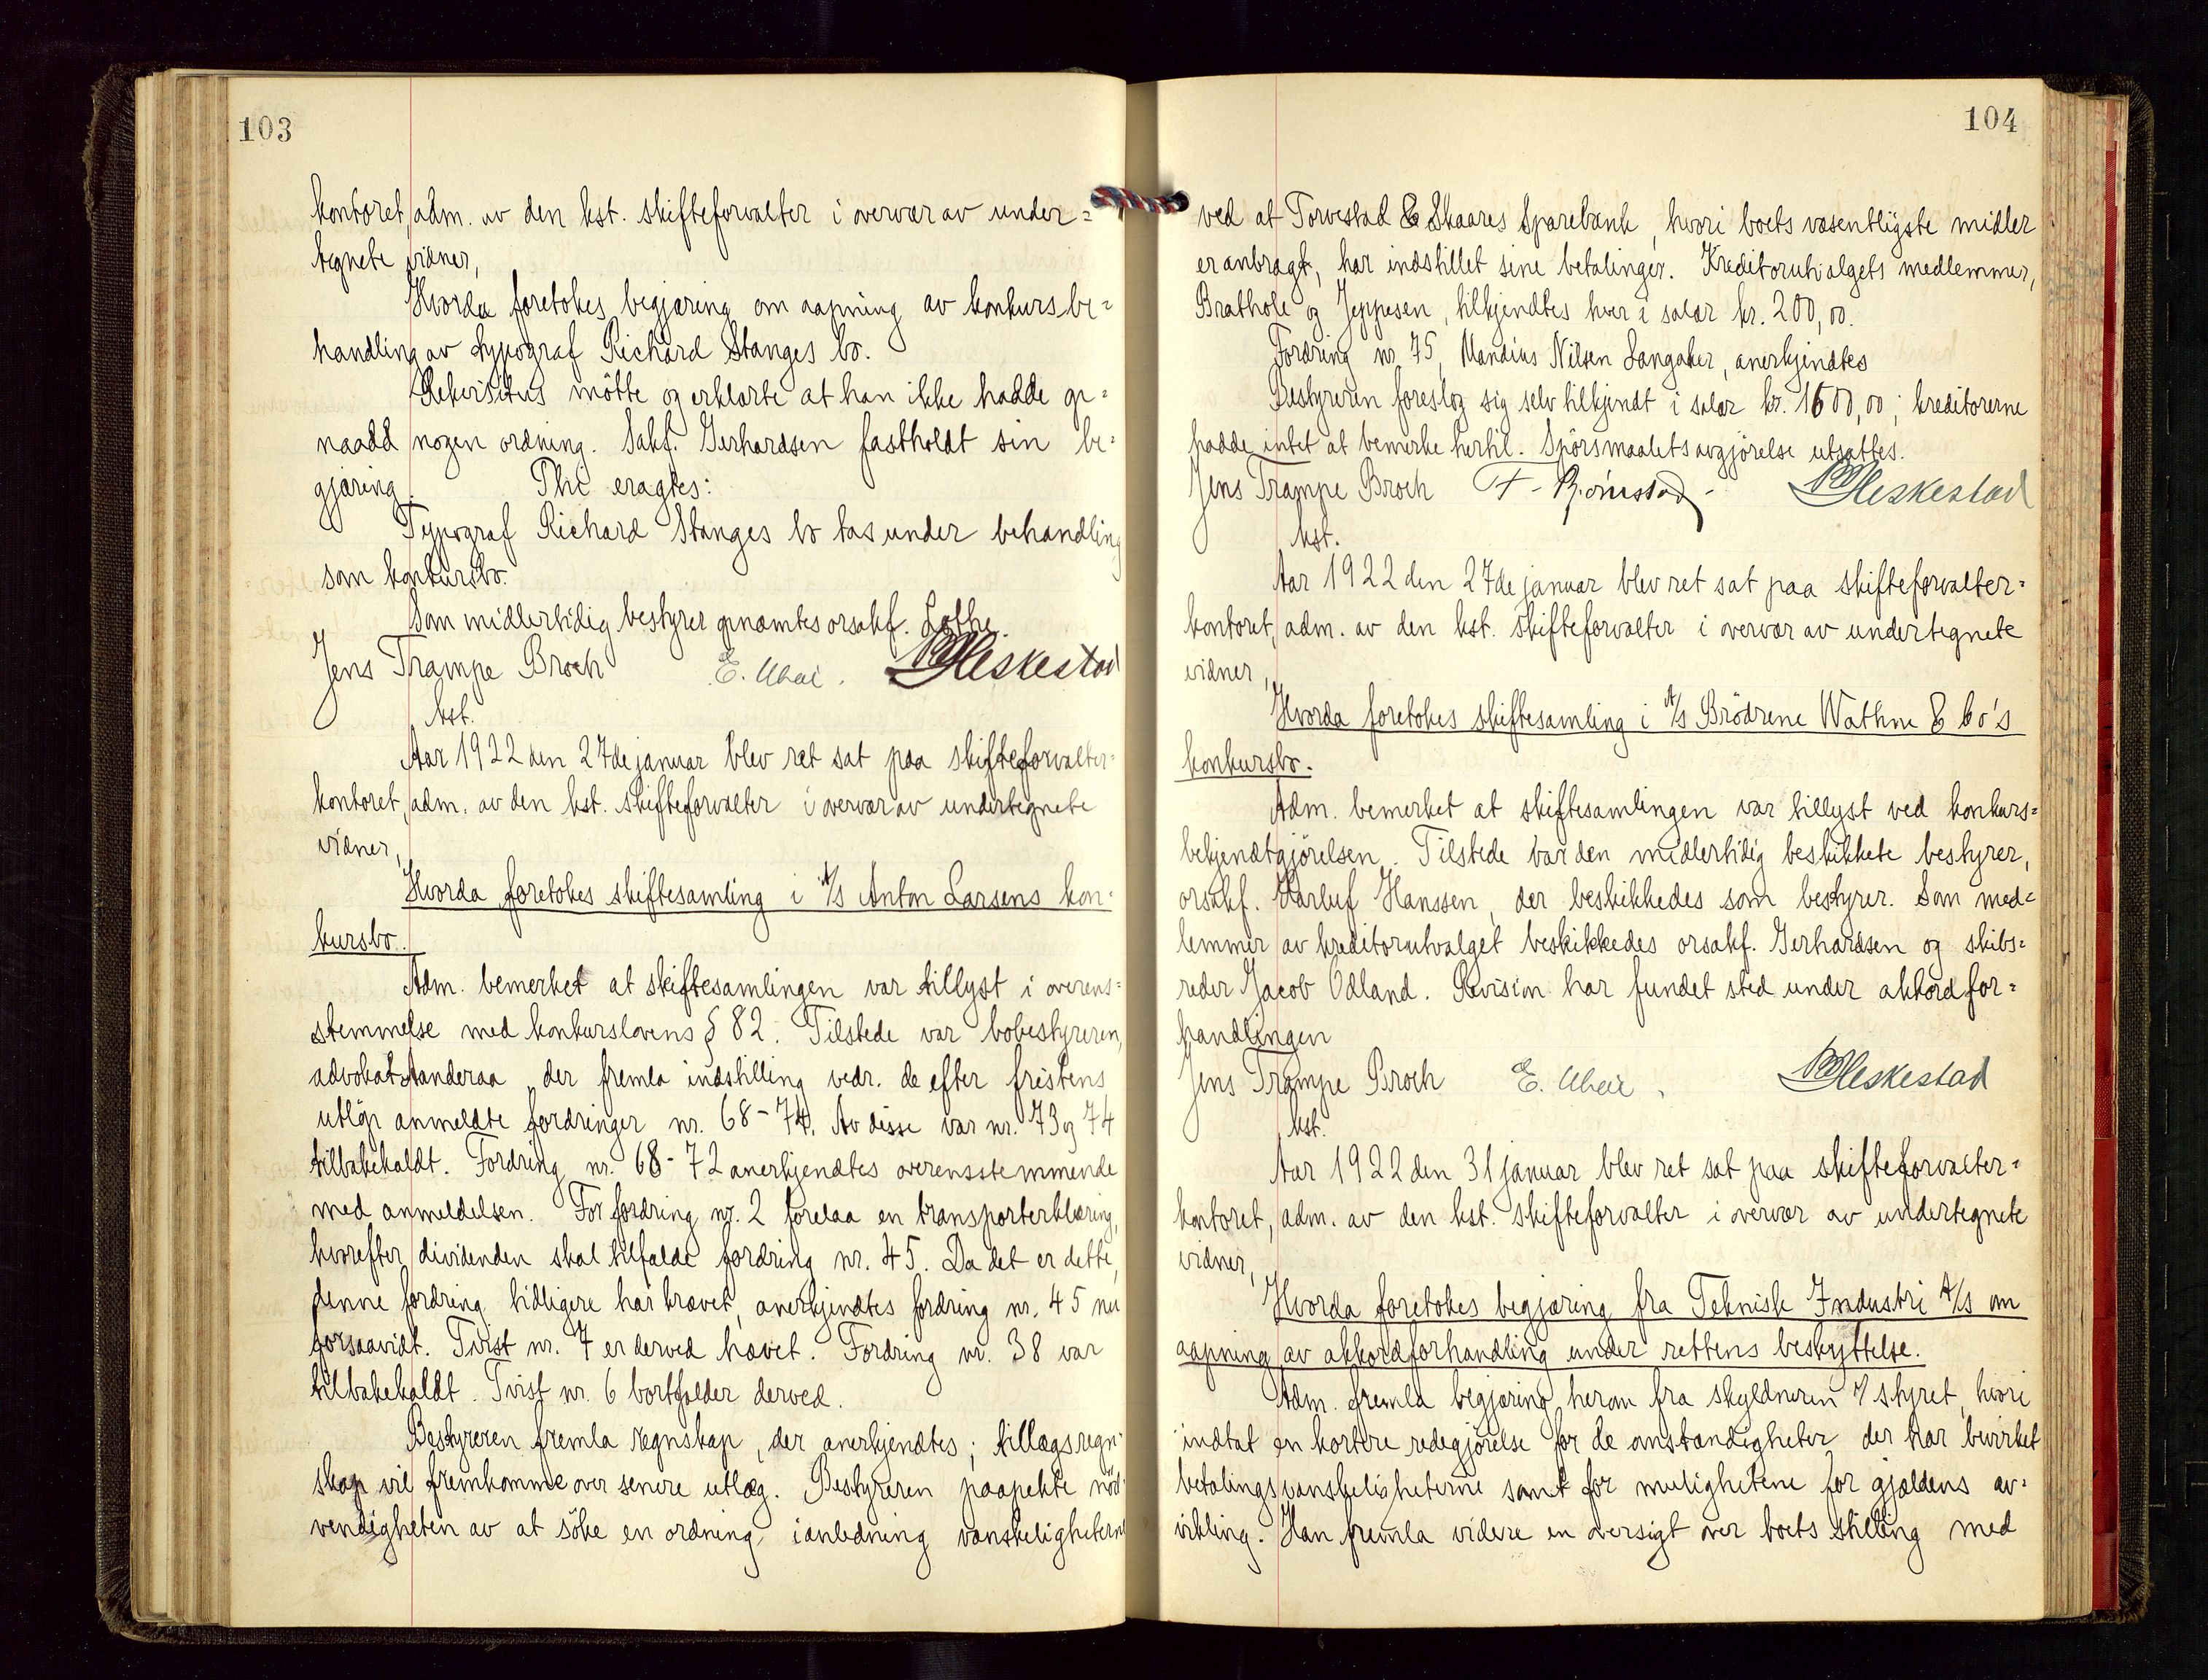 103
kontoret, adm. av den kst. skifteforvalter i overvær av under=
tegnete vidner,
Hvorda foretokes begjæring om aapning av konkursbe=
handling av typograf Richard Stanges bo.
Rekvisitus mötte og erklærte at han ikke hadde op=
naadd nogen ordning. Sakf. Gerhardsen fastholdt sin be=
gjæring. Thi eragtes:
Typograf Richard Stanges bo tas under behandling
som konkursbo.
Som midlertidig bestyrer opnæmtes orsakf. Lothe.
Jens Trampe Broch E. Heskestad
kst.
Aar 1922 den 27de januar blev ret sat paa skifteforvalter=
kontoret, adm. av den kst. skifteforvalter i overvær av undertegnete
vidner,
Hvorda foretokes skiftesamling i A/S Anton Larsens kon=
kursbo.
Adm. bemerket at skiftesamlingen var tillyst i overens=
stemmelse med konkurslovens § 82. Tilstede var bobestyreren,
advokat Aanderaa, der fremla indstilling vedr. de efter fristens
utlöp anmeldte fordringer nr. 68-74. Av disse var nr. 73 og 74
tilbakekaldt. Fordring nr. 68-72 anerkjendtes overensstemmende
med anmeldelsen. For fordring nr. 2 forelaa en transporterklæring,
hvorefter dividenden skal tilfalde fordring nr. 45. Da det er dette,
denne fordring tidligere har krævet, anerkjendtes fordring nr. 45 nu
forsaavidt. Tvist nr. 7 er derved hævet. Fordring nr. 38 var
tilbakekaldt. Tvist nr. 6 bortfalder derved.
Bestyreren fremla regnskap, der anerkjendtes; tillægsregn=
skap vil fremkomme over senere utlæg. Bestyreren paapekte nöd=
vendigheten av at söke en ordning, i anledning vanskeligheterne
104
ved at Torvestad & Skaares Sparebank, hvori boets væsentligste midler
er anbragt, har indstillet sine betalinger. Kreditorutvalgets medlemmer,
Brathole og Jeppesen, tilkjendtes hver i salær kr. 200,00.
Fordring nr. 75, Mandius Nilsen Langaker, anerkjendtes
Bestyreren foreslog sig selv tilkjendt i salær kr. 1600,00; kreditorerne
hadde intet at bemerke hertil. Spörsmaalets avgjörelse utsattes.
Jens Trampe Broch F. Björnstad Heskestad
kst.
Aar 1922 den 27de januar blev ret sat paa skifteforvalter=
kontoret, adm. av den kst. skifteforvalter i overvær av undertegnete
vidner,
Hvorda foretokes skiftesamling i A/S Brödrene Wathne & Co's
konkursbo.
Adm. bemerket at skiftesamlingen var tillyst ved konkurs=
bekjendtgjörelsen. Tilstede var den midlertidig beskikkete bestyrer,
orsakf. Karluf Hanssen, der beskikkedes som bestyrer. Som med=
lemmer av kreditorutvalget beskikkedes orsakf. Gerhardsen og skibs=
reder Jacob Odland. Revision har fundet sted under akkordfor=
handlingen
Jens Trampe Broch E. Heskestad
kst.
Aar 1922 den 31 januar blev ret sat paa skifteforvalter=
kontoret, adm. av den kst. skifteforvalter i overvær av undertegnete
vidner,
Hvorda foretokes begjæring fra Teknisk Industri A/S om
aapning av akkordforhandling under rettens beskyttelse.
Adm. fremla begjæring herom fra skyldneren v/ styret, hvori
indtat en kortere redegjörelse for de omstændigheter der har bevirket
betalingsvanskeligheterne samt for mulighetene for gjældens av=
vikling. Han fremla videre en oversigt over boets stilling med